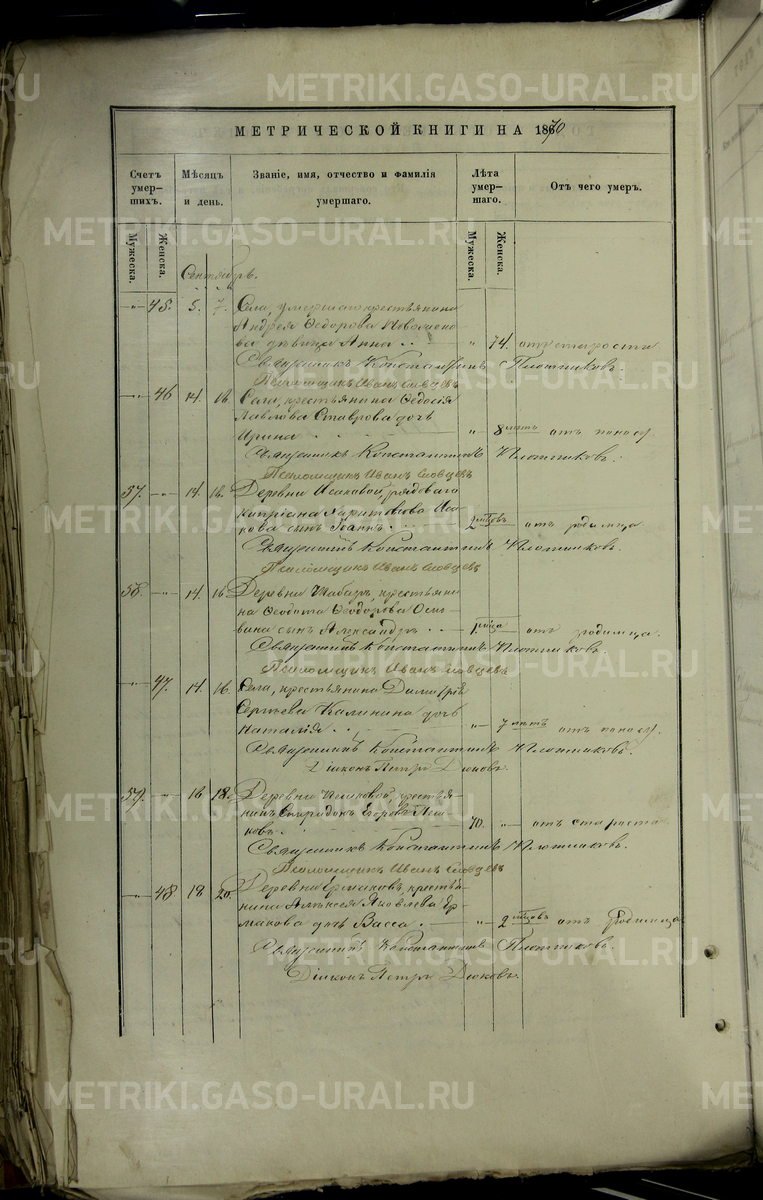 METRIKI.GASO-URAL.RU
МЕТРИЧЕСКОЙ КНИГИ НА 1870
Счетъ умершихъ.
Мѣсяцъ и день.
Званіе, имя, отчество и фамилія умершаго.
Лѣта умершаго.
Отъ чего умеръ.
Мужеска.
Женска.
Мужеска.
Женска.
Сентябрь.
45. 5. 7. Села, умершаго крестьянина
Андрея Ѳедорова
дѣвица Анна 74. отъ старости
Священникъ Константинъ Плотниковъ.
Псаломщикъ Иванъ Словцевъ
46 14. 16. Села, крестьянина Ѳедосія
Павлова Ставрова дочь
Ирина 8 лѣтъ отъ поноса.
Священникъ Константинъ Плотниковъ.
Псаломщикъ Иванъ Словцевъ
57. 14. 16. Деревни Исаковой, рядоваго
Кипріана Харитонова Иса-
кова сынъ Іоаннъ. 2 мѣс. отъ родимца
Священникъ Константинъ Плотниковъ.
Псаломщикъ Иванъ Словцевъ
58. 14. 16 Деревни крестьяни-
на Ѳеодота Ѳеодорова
сынъ Александръ 1 мѣсяца отъ родимца.
Священникъ Константинъ Плотниковъ.
Псаломщикъ Иванъ Словцевъ
47. 14. 16. Села, крестьянина Димитрія
Сергѣева Калинина дочь
Наталія 7 лѣтъ отъ поноса.
Священникъ Константинъ Плотниковъ.
Діаконъ Петръ Дюковъ.
59. 16 18. Деревни крестья-
нинъ Спиридонъ Егоровъ
70. отъ старости
Священникъ Константинъ Плотниковъ.
Псаломщикъ Иванъ Словцевъ
48 18 20. Деревни Ермаковой, крестья-
нина Алексѣя Яковлева Ер-
макова дочь Васса. 2 мѣс. отъ родимца
Священникъ Константинъ Плотниковъ.
Діаконъ Петръ Дюковъ.